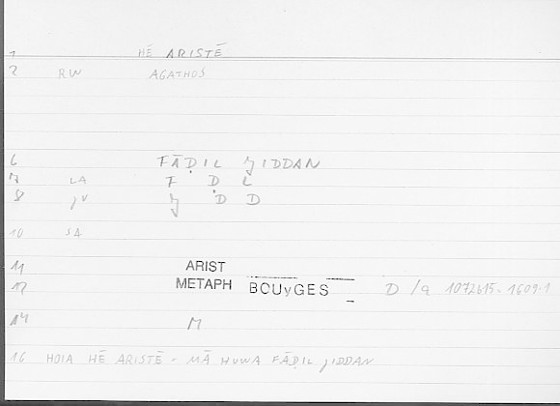 1 HĒ ARISTĒ
2 RW AGATHOS
6 FĀḌIL ǧIDDAN
7 LA F Ḍ L
8 ǧ D D
10 SA
11 ARIST
12 METAPH BOUyGES D /a 1072b15-1609.1
14 M
16 HOIA HĒ ARISTĒ - MĀ HUWA FĀḌIL ǧIDDAN